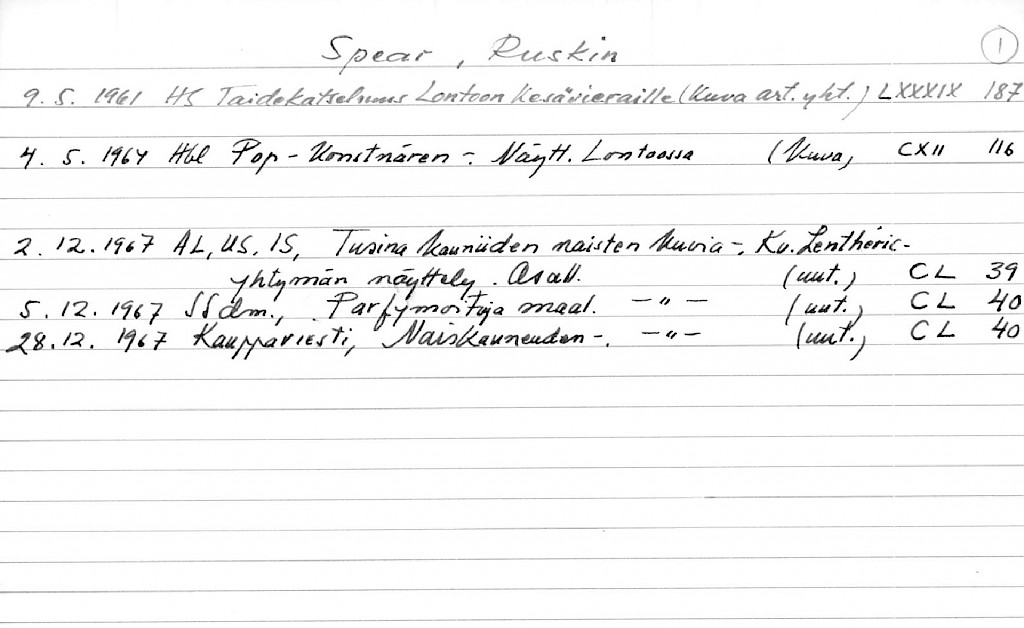 Spear, Ruskin 1
9. 5. 1961 HS Taidekatselmus Lontoon kesävieraille (Kuva art. yht.) LXXXIX 187
4. 5. 1964 Hbl Pop-Konstnären -. Näytt. Lontoossa (Kuva) CXII 116
2. 12. 1967 AL, US, IS, Tusina kauniiden naisten kuvia -. Kv. Lenthéric-
yhtymän näyttely. (uut.) CL 39
5. 12. 1967 SSdm., Parfymoituja maal. -"- (uut.) CL 40
28. 12. 1967 Kauppaviesti, Naiskauneuden -. -"- (uut.) CL 40